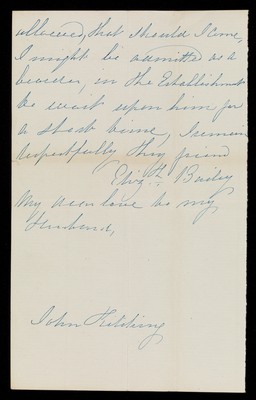 allowed, that should I come,
I might be admitted as a
boarder, in the Establishment
to wait upon him for
a short time, I remain
respectfully thy friend
Eliz.th Bailey
My dear love to my
Husband,
John Kitching